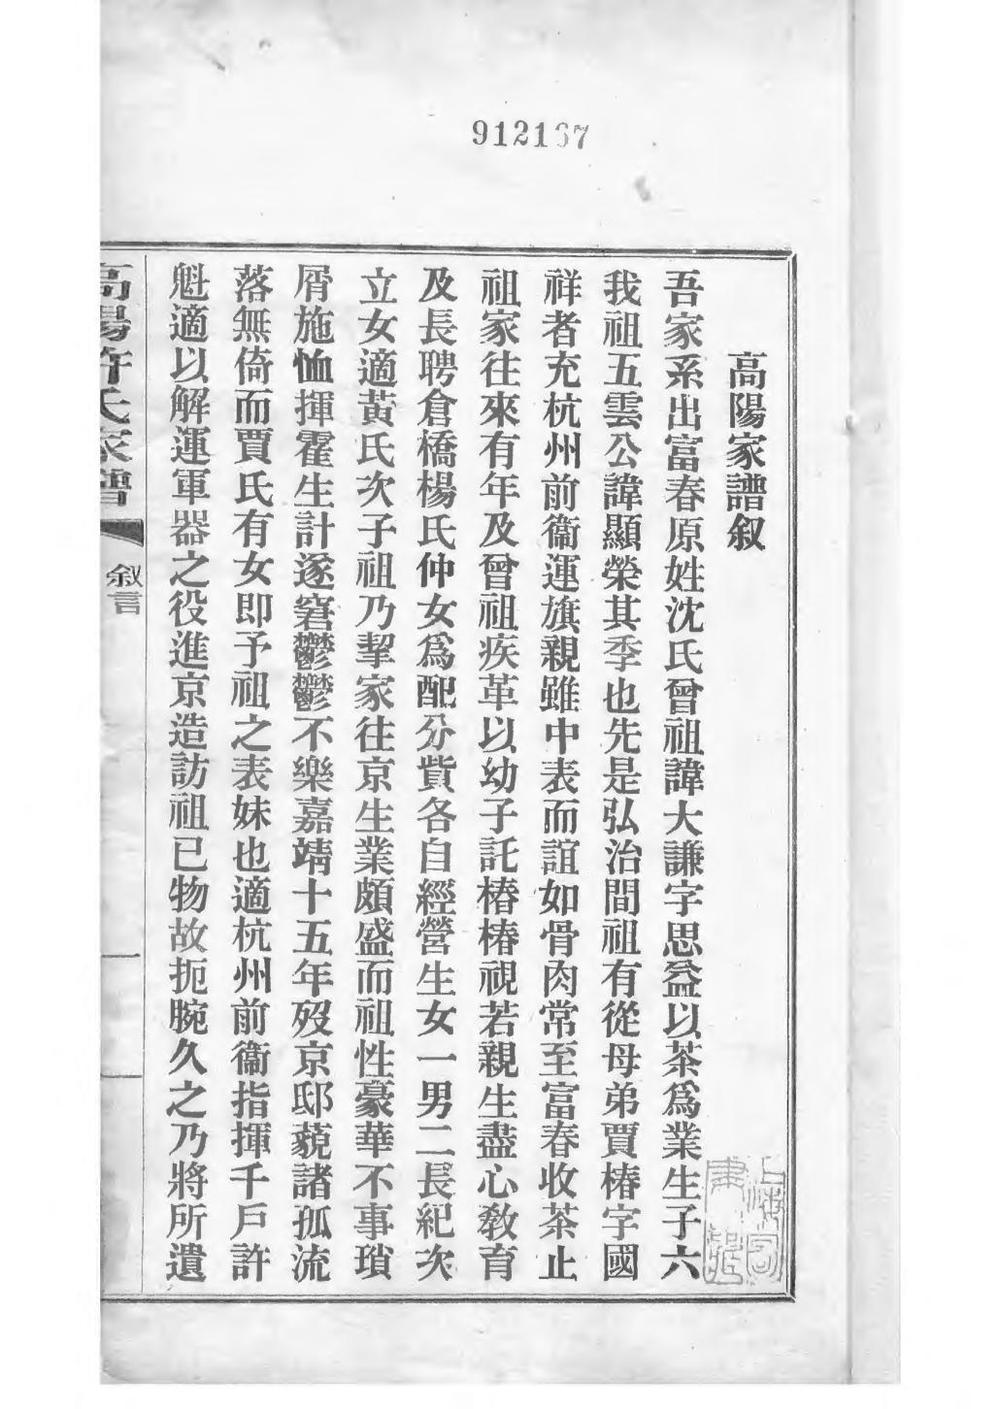 912167
高陽家譜叙
吾家系出富春原姓沈氏曾祖諱大謙字思益以茶爲業生子六
我祖五雲公諱顯榮其季也先是弘治間祖有從母弟賈椿字國
祥者充杭州前衞運旗親雖中表而誼如骨肉常至富春收茶止
祖家往來有年及曾祖疾革以幼子託椿椿視若親生盡心敎育
及長聘倉橋楊氏仲女爲配分貲各自經營生女一男二長紀次
立女適黃氏次子祖乃挈家往京生業頗盛而祖性豪華不事瑣
屑施恤揮霍生計遂窘鬱鬱不樂嘉靖十五年歿京邸藐諸孤流
落無倚而賈氏有女即予祖之表妹也適杭州前衞指揮千戶許
魁適以解運軍器之役進京造訪祖已物故扼腕久之乃將所遺
高陽許氏家譜
叙言
一